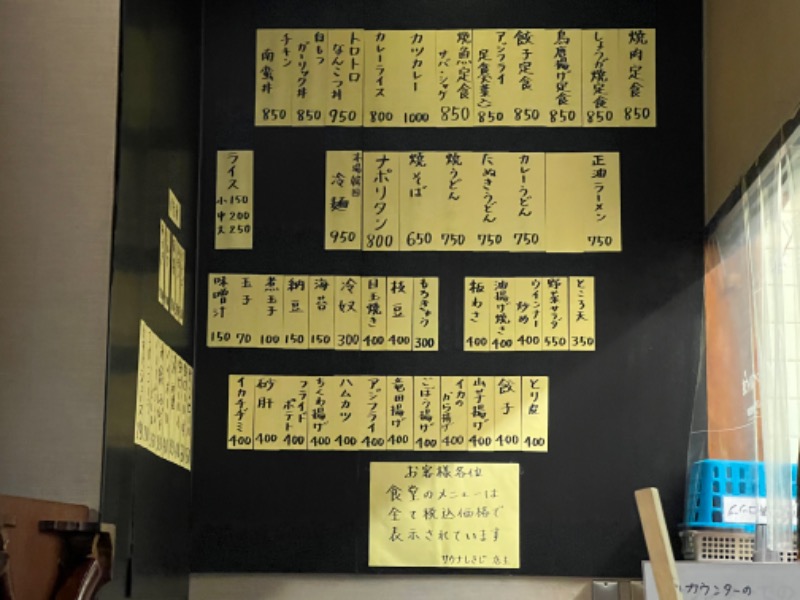 焼肉定食 850
しょうが焼定食 850
鳥唐揚げ定食 850
餃子定食 850
アジフライ定食 850
焼魚定食 サバ・シャケ 850
カツカレー 1000
カレーライス 800
トロトロなんこつ丼 950
白もつガーリック丼 850
チキン南蛮丼 850
正油ラーメン 750
カレーうどん 750
たぬきうどん 750
焼うどん 750
焼そば 650
ナポリタン 800
冷麺 950
ライス
小 150
中 200
大 250
ところ天 350
野菜サラダ 550
ウインナー炒め 400
油揚げ焼き 400
板わさ 400
もろきゅう 300
枝豆 400
目玉焼き 400
冷奴 300
海苔 150
納豆 150
煮玉子 100
玉子 70
味噌汁 150
とり皮 400
餃子 400
山芋揚げ 400
イカのから揚げ 400
ごぼう揚げ 400
竜田揚げ 400
アジフライ 400
ハムカツ 400
ちくわ揚げ 400
フライドポテト 400
砂肝 400
イカチヂミ 400
お客様各位
食堂のメニューは
全て税込価格で
表示されています
サウナしきじ 店主
カウンターの